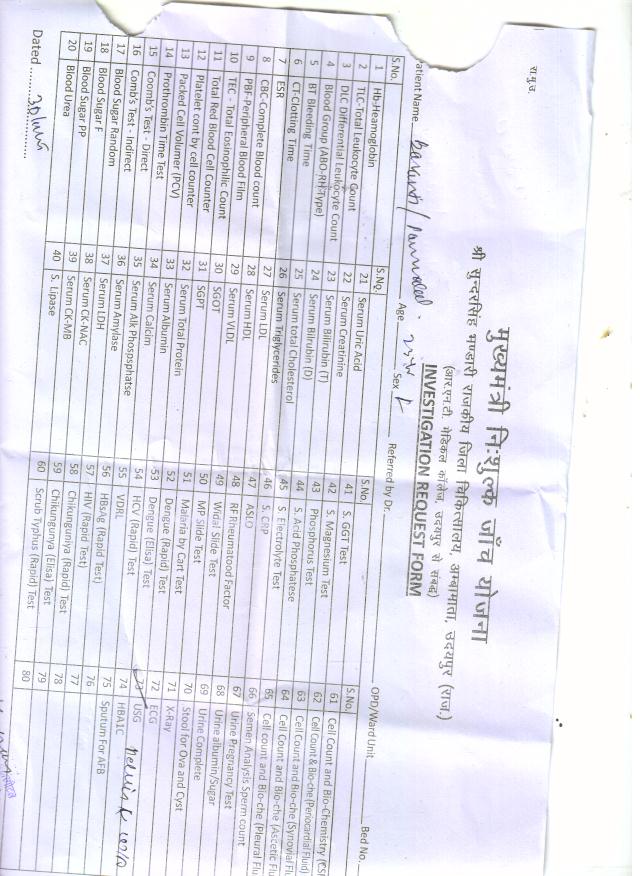 रा.मु.उ
मुख्यमंत्री निःशुल्क जाँच योजना
श्री सुन्दरसिंह भण्डारी राजकीय जिला चिकित्सालय, अम्बामाता, उदयपुर (राज.)
(आर.एन.टी. मेडिकल कॉलेज, उदयपुर से संबद्ध)
INVESTIGATION REQUEST FORM
OPD/Ward Unit Bed No.
atient Name Age Sex Referred by Dr.
S.No. S.No. S.No. S.No.
1 Hb-Heamoglobin 21 Serum Uric Acid 41 S. GGT Test 61 Cell Count and Bio-Chemistry (CS
2 TLC-Total Leukocyte Count 22 Serum Creatinine 42 S. Magnesium Test 62 Cell Count & Bio-che (Periocardial Fluid)
3 DLC Differential Leukocyte Count 23 Serum Bilirubin (T) 43 Phosphorus Test 63 Cell Count and Bio-che (Synovial Fl
4 Blood Group (ABO-RH Type) 24 Serum Bilrubin (D) 44 S. Acid Phosphatese 64 Cell Count and Bio-che (Ascetic Flu
5 BT Bleeding Time 25 Serum total Cholesterol 45 S. Electrolyte Test 65 Cell count and Bio-che (Pleural Flu
6 CT-Clotting Time 26 Serum Triglycerides 46 S. CRP 66 Semen Analysis Sperm count
7 ESR 27 Serum LDL 47 ASLO 67 Urine Pregnancy Test
8 CBC-Complete Blood count 28 Serum HDL 48 RF Rheumatood Factor 68 Urine albumin/Sugar
9 PBF-Peripheral Blood Film 29 Serum VLDL 49 Widal Slide Test 69 Urine Complete
10 TEC - Total Eosinophilic Count 30 SGOT 50 MP Slide Test 70 Stool for Ova and Cyst
11 Total Red Blood Cell Counter 31 SGPT 51 Malaria by Cart Test 71 X-Ray
12 Platelet cont by cell counter 32 Serum Total Protein 52 Dengue (Rapid) Test 72 ECG
13 Packed Cell Volumer (PCV) 33 Serum Albumin 53 Dengue (Elisa) Test 73 USG
14 Prothrombin Time Test 34 Serum Calcim 54 HCV (Rapid) Test 74 HBA1C
15 Coomb's Test - Direct 35 Serum Alk Phospsphatse 55 VDRL 75 Sputum For AFB
16 Comb's Test - Indirect 36 Serum Amylase 56 HBsAg (Rapid Test) 76
17 Blood Sugar Random 37 Serum LDH 57 HIV (Rapid Test) 77
18 Blood Sugar F 38 Serum CK-NAC 58 Chikunguniya (Rapid) Test 78
19 Blood Sugar PP 39 Serum CK-MB 59 Chikungunya (Elisa) Test 79
20 Blood Urea 40 S. Lipase 60 Scrub Typhus (Rapid) Test 80
Dated